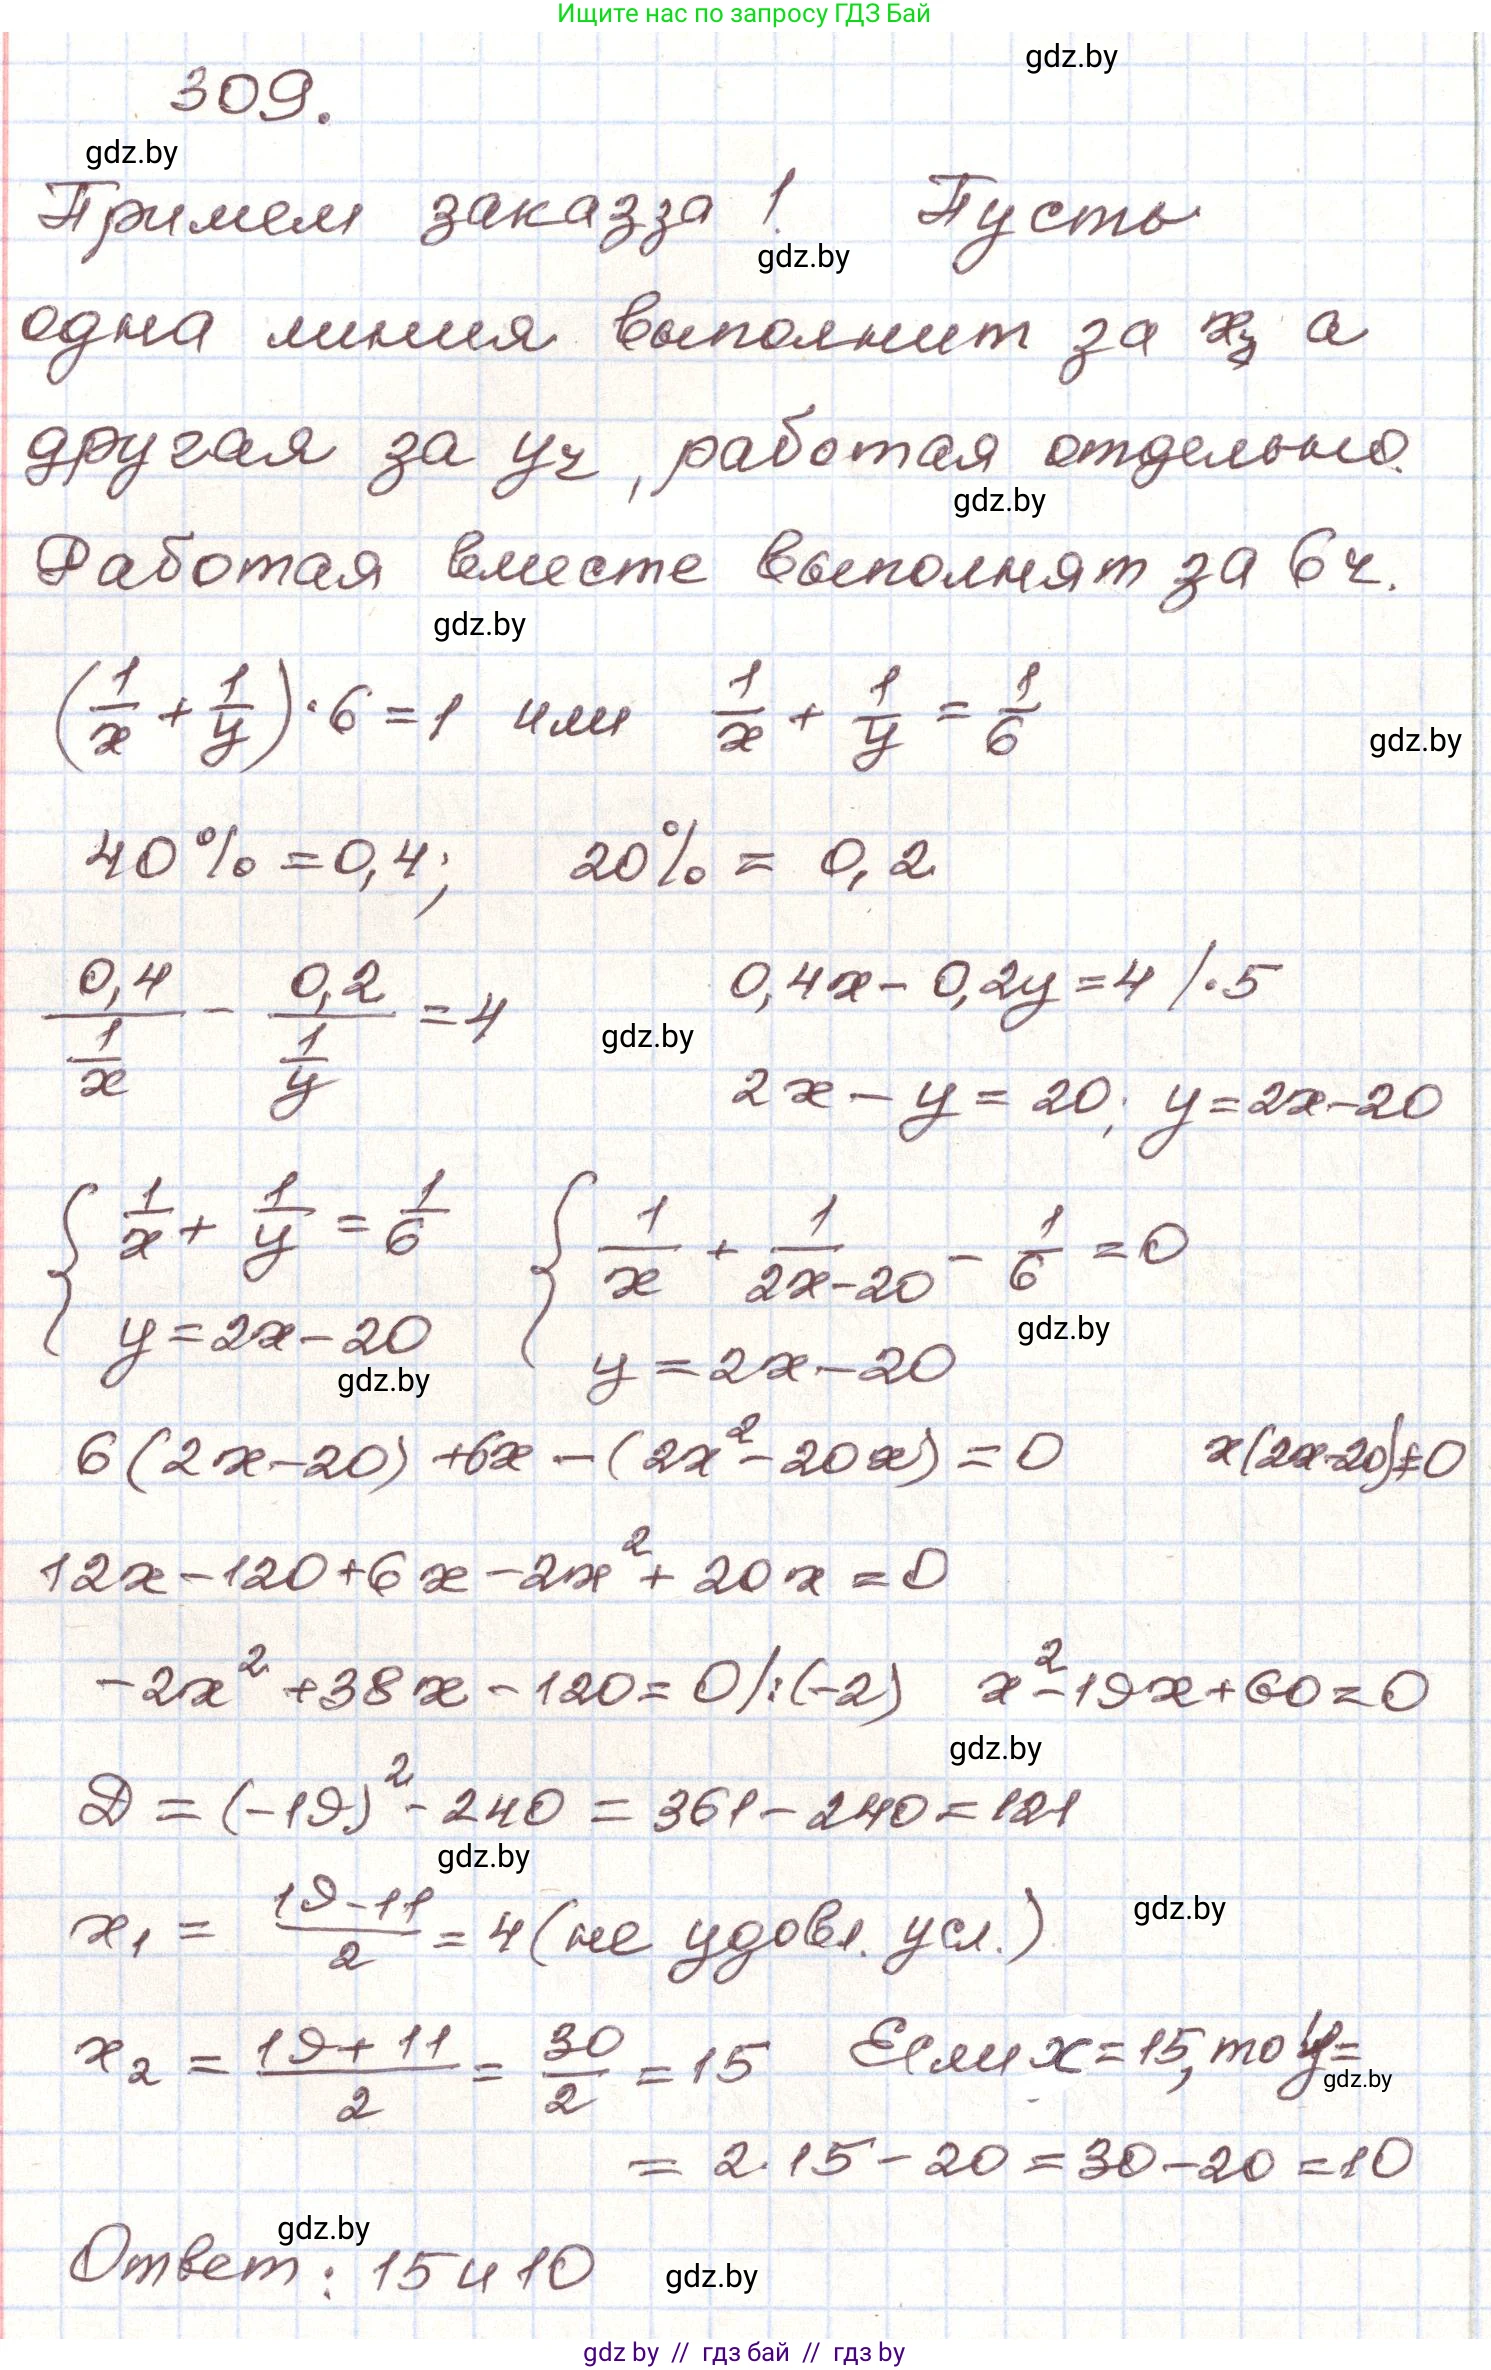 Ищите нас по запросу ГДЗ Бай
gdz.by
309.
gdz.by
Примем заказ за 1. Пусть
gdz.by
одна линия выполнит за xч, а
другая за yч, работая отдельно.
gdz.by
Работая вместе выполнят за 6ч.
gdz.by
(1/x + 1/y)·6=1 или 1/x + 1/y = 1/6
gdz.by
40%=0,4; 20% = 0,2
0,4/(1/x) - 0,2/(1/y) =4 0,4x-0,2y=4 /·5
gdz.by
2x-y=20; y=2x-20
{ 1/x + 1/y = 1/6 { 1/x + 1/(2x-20) - 1/6 =0
y=2x-20 y=2x-20
gdz.by
gdz.by
6(2x-20)+6x-(2x²-20x)=0 x(2x-20)≠0
12x-120+6x-2x²+20x=0
-2x²+38x-120=0/:(-2) x²-19x+60=0
gdz.by
D=(-19)²-240=361-240=121
gdz.by
x₁ = (19-11)/2 = 4 (не удовл. усл.)
gdz.by
x₂ = (19+11)/2 = 30/2 = 15 Если x=15, то y=
gdz.by
= 2·15-20=30-20=10
gdz.by
Ответ: 15 и 10
gdz.by
gdz.by // гдз бай // гдз by